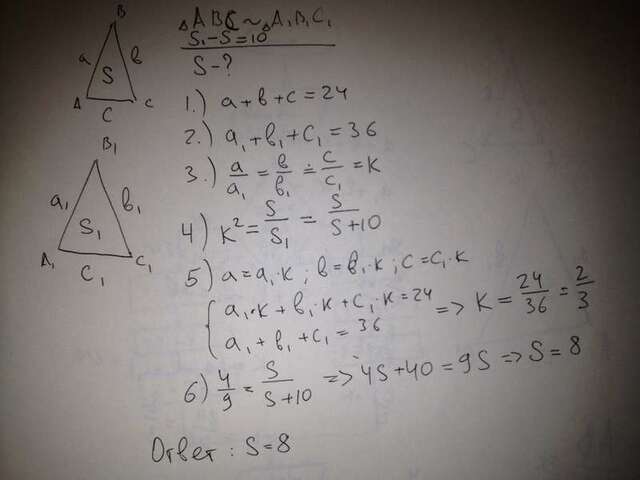 A₁ a₁ B₁ b₁ C₁ c₁ S₁
A a B b C c S
△ABC ~ △A₁B₁C₁
S₁ - S = 10
S - ?
1.) a + b + c = 24
2.) a₁ + b₁ + c₁ = 36
3.) a/a₁ = b/b₁ = c/c₁ = K
4) K² = S/S₁ = S/(S+10)
5) a = a₁·K; b = b₁·K; c = c₁·K
{ a₁·K + b₁·K + c₁·K = 24
a₁ + b₁ + c₁ = 36 => K = 24/36 = 2/3
6) 4/9 = S/(S+10) => 4S + 40 = 9S => S = 8
Ответ: S = 8